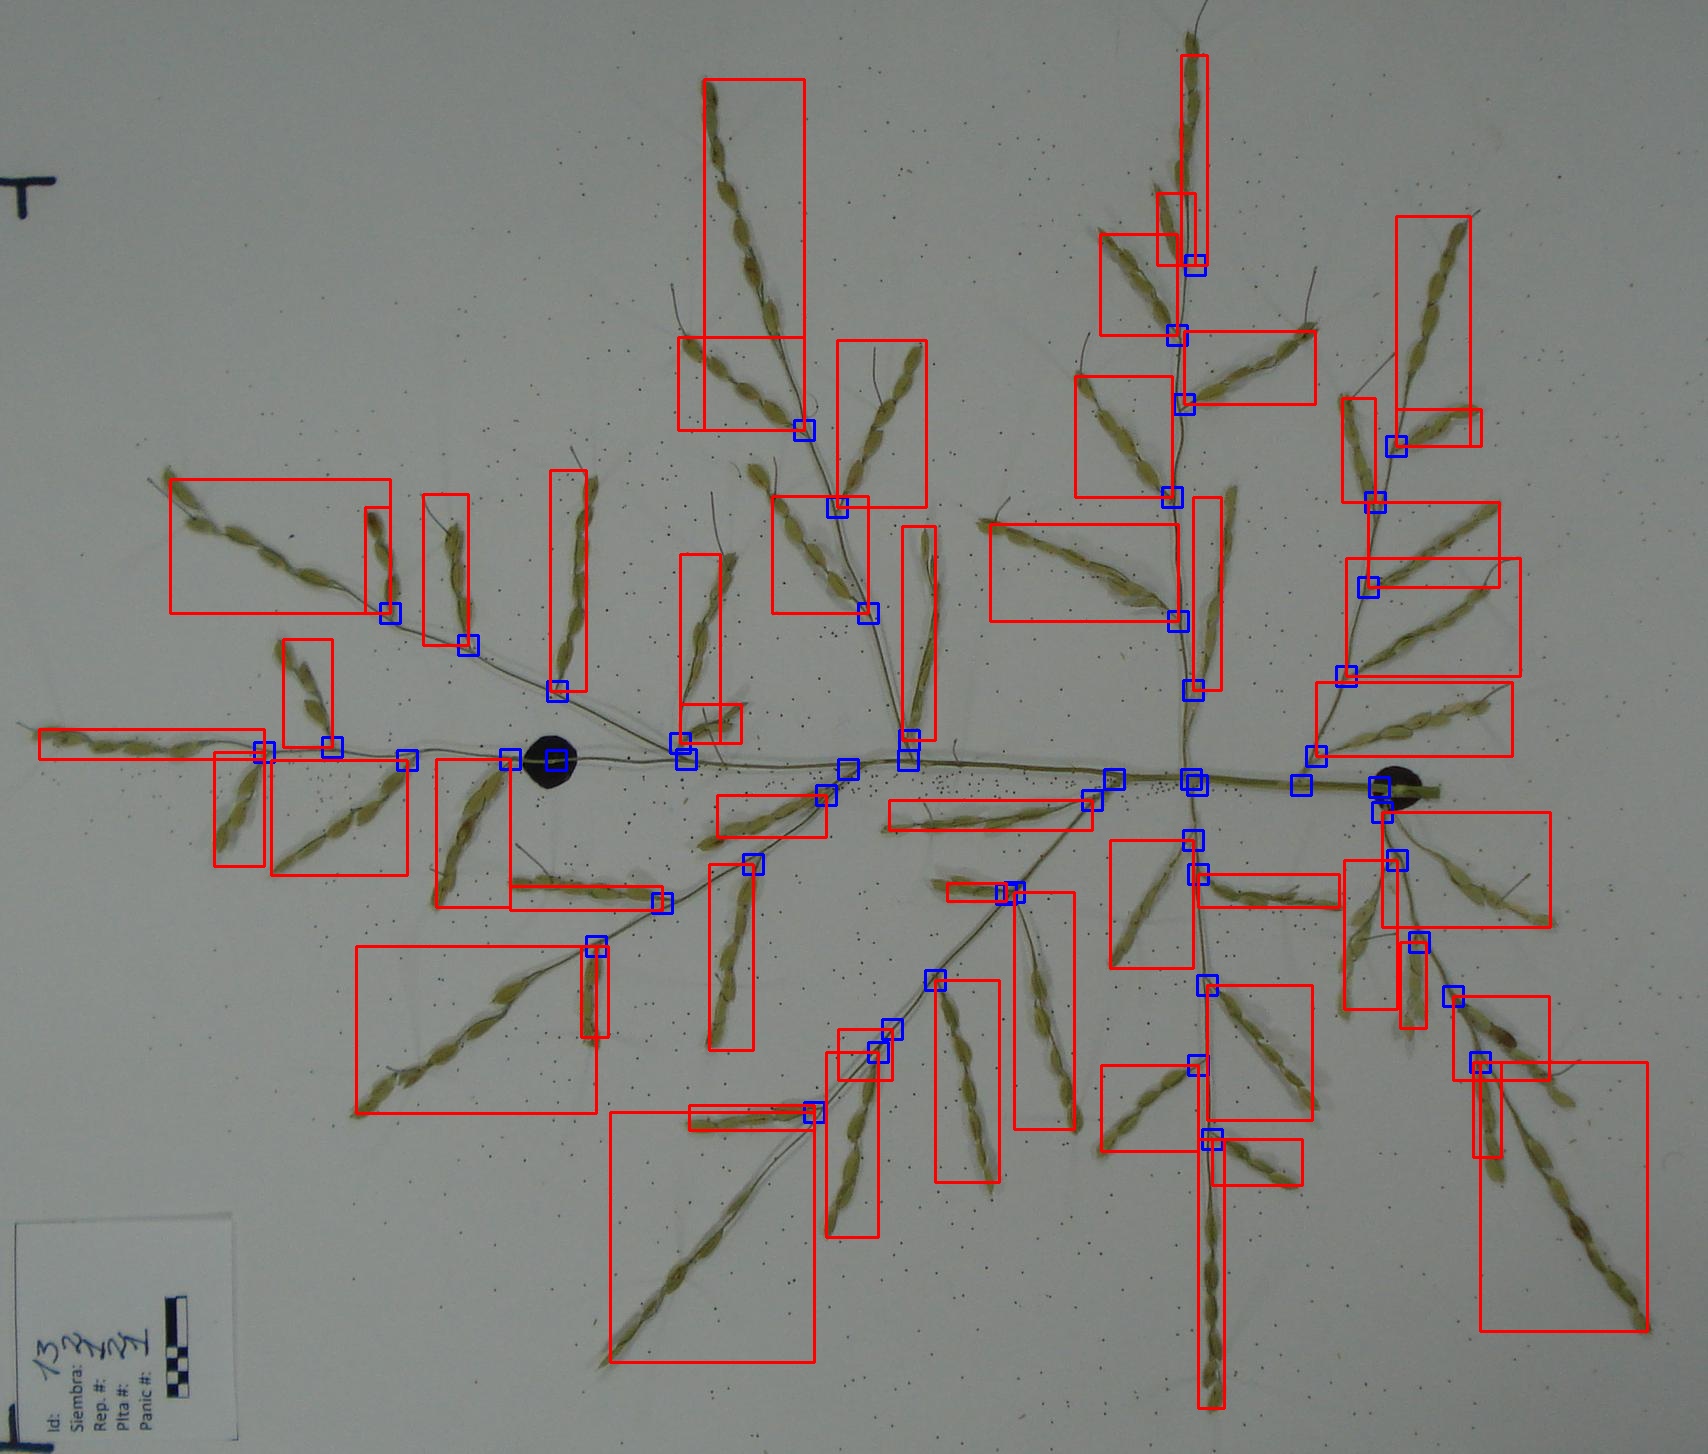 Id: 13
Siembra: 2
Rep. #: 1
Plta #: 2
Panic #: 1